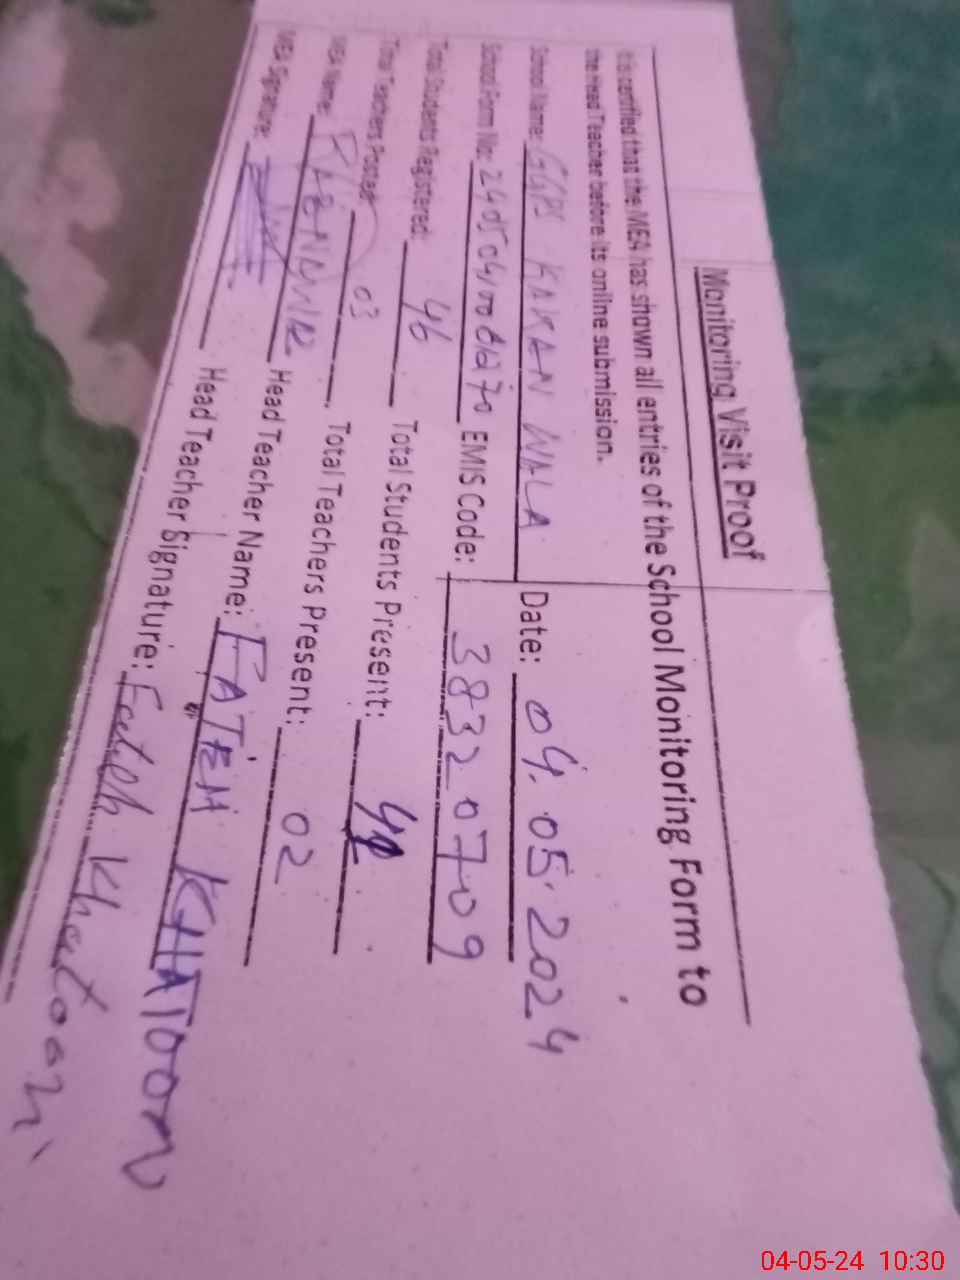 Monitoring Visit Proof
It is certified that the MEA has shown all entries of the School Monitoring Form to
the Head Teacher before its online submission.
School Name: GGPS KAKAN WALA Date: 04.05.2024
School Form No: EMIS Code: 38320709
Total Students Registered: 46 Total Students Present:
Total Teachers Posted: 03 Total Teachers Present: 02
MEA Name: Head Teacher Name: FATEH KHATOON
MEA Signature: Head Teacher Signature: Fateh Khatoon
04-05-24 10:30